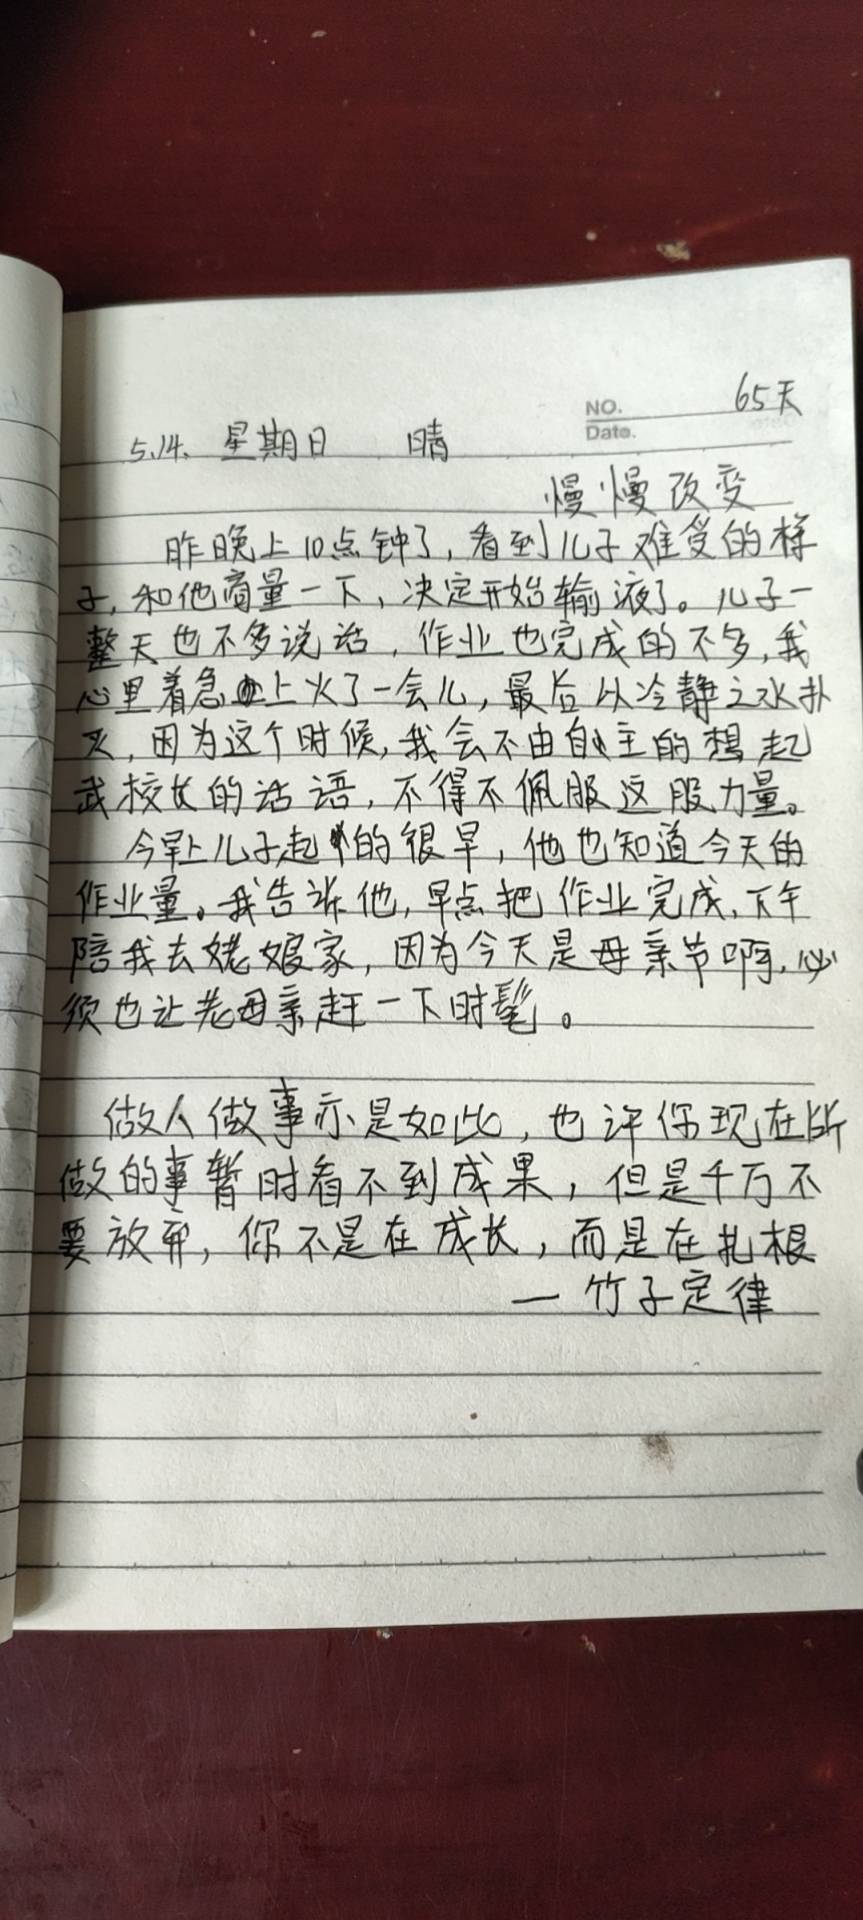 NO. 65天
Date.
5.14. 星期日 晴
慢慢改变
昨晚上10点钟了，看到儿子难受的样
子，和他商量一下，决定开始输液了。儿子一
整天也不多说话，作业也完成的不多，我
心里着急上火了一会儿，最后以冷静之水扑
灭，因为这个时候，我会不由自主的想起
武校长的话语，不得不佩服这股力量。
今早上儿子起的很早，他也知道今天的
作业量。我告诉他，早点把作业完成，下午
陪我去姥娘家，因为今天是母亲节啊，必
须也让老母亲赶一下时髦。
做人做事亦是如此，也许你现在所
做的事暂时看不到成果，但是千万不
要放弃，你不是在成长，而是在扎根
—竹子定律